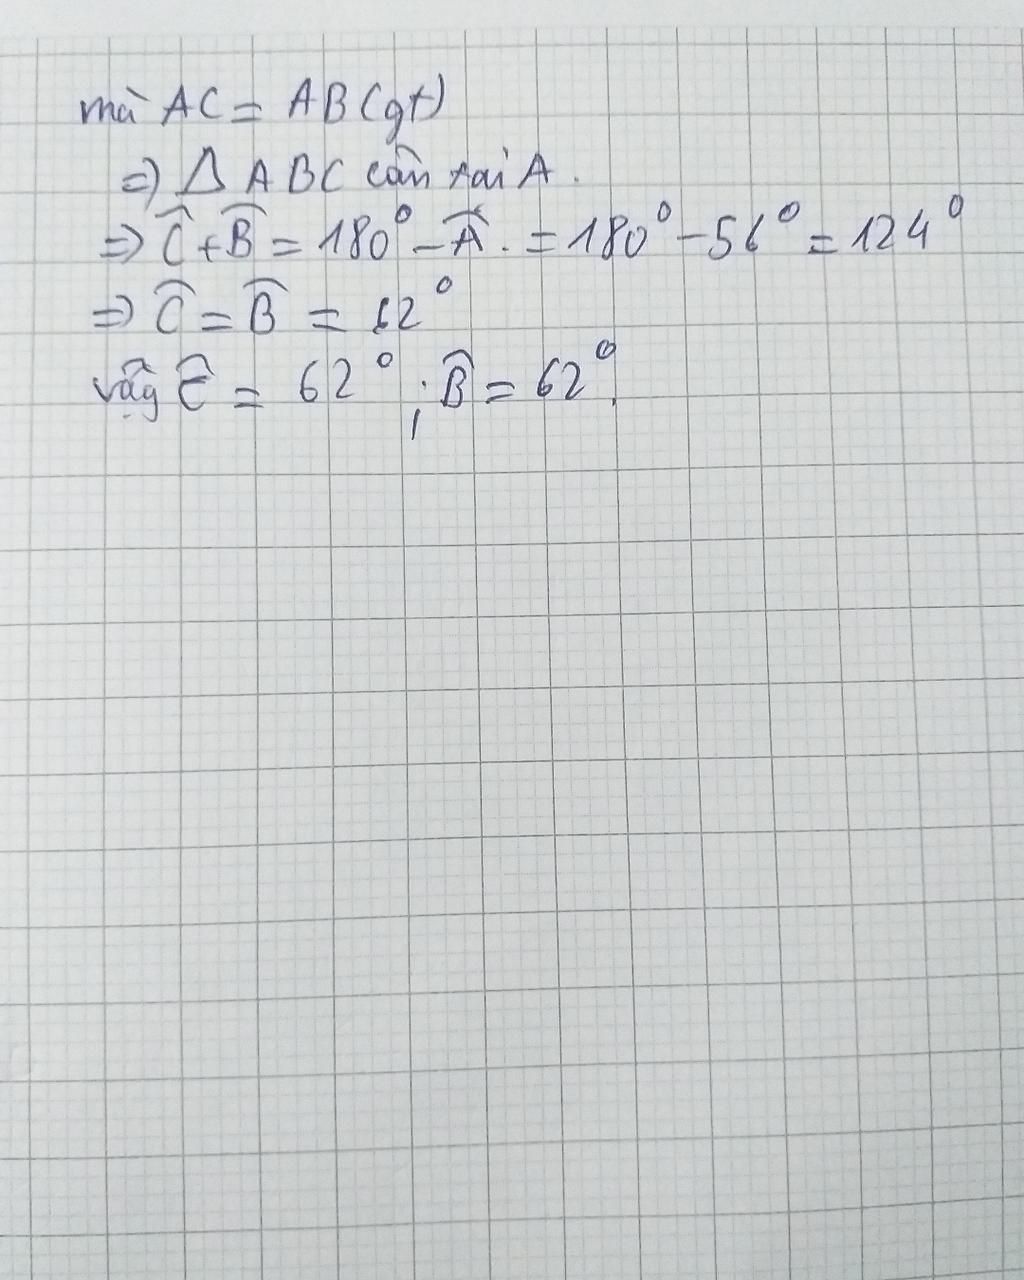 mà AC = AB (gt)
=) Δ ABC cân tại A.
=) Ĉ + B̂ = 180° - Â. = 180° - 56° = 124°
=) Ĉ = B̂ = 62°
vậy Ĉ = 62° ; B̂ = 62°.